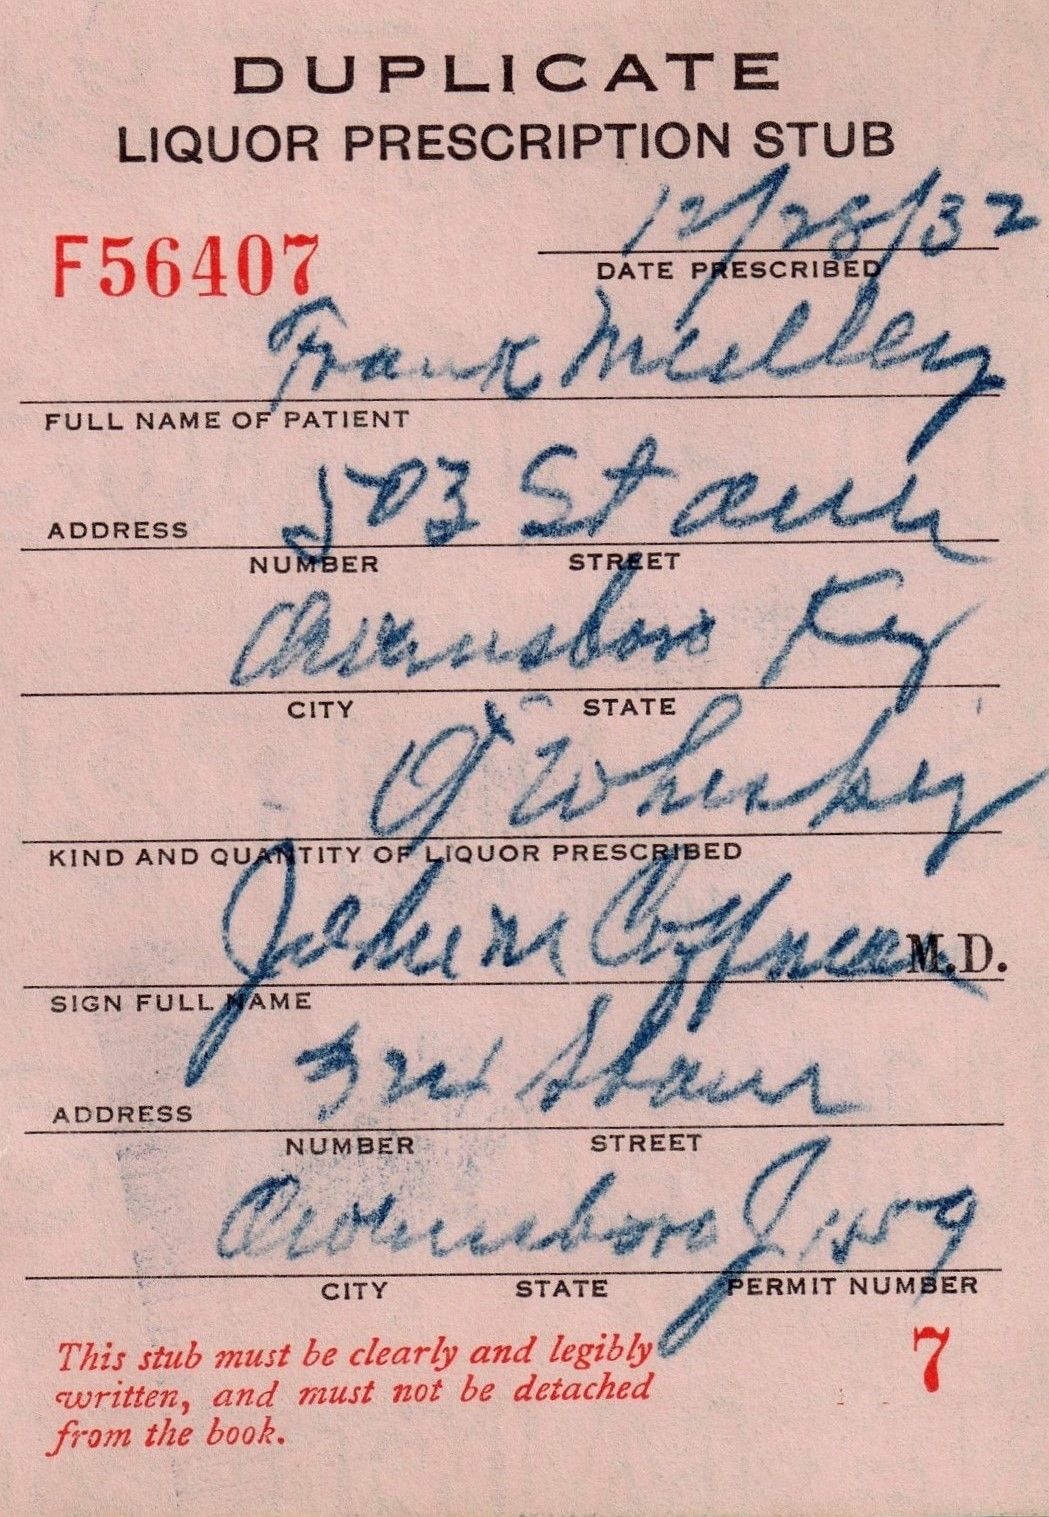 DUPLICATE
LIQUOR PRESCRIPTION STUB
12/28/32
F56407
DATE PRESCRIBED
Frank Mulley
FULL NAME OF PATIENT
503 St ann
ADDRESS
NUMBER STREET
Owensboro Ky
CITY STATE
Whiskey
KIND AND QUANTITY OF LIQUOR PRESCRIBED
John M Coffman M.D.
SIGN FULL NAME
St ann
ADDRESS
NUMBER STREET
Owensboro J 1459
CITY STATE PERMIT NUMBER
This stub must be clearly and legibly
written, and must not be detached
from the book.
7